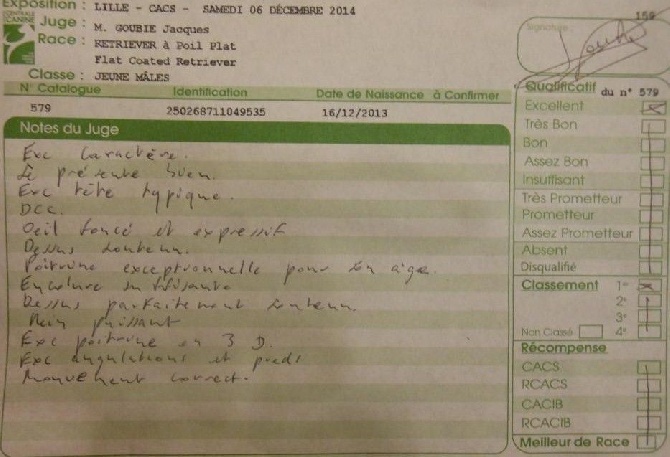 Exposition : LILLE - CACS - SAMEDI 06 DÉCEMBRE 2014
159
CENTRALE CANINE
Juge : M. GOUBIE Jacques
Signature
Race : RETRIEVER à Poil Plat
Flat Coated Retriever
Classe : JEUNE MÂLES
N° Catalogue Identification Date de Naissance à Confirmer
579 250268711049535 16/12/2013
Notes du Juge
Exc caractère.
Se présente bien.
Exc tête typique.
DCC.
Oeil foncé et expressif
Dessus soutenu.
Poitrine exceptionnelle pour son age.
Encolure suffisante
Dessus parfaitement soutenu.
Rein puissant
Exc poitrine en 3 D.
Exc angulations et pieds
Mouvement correct.
Qualificatif du n° 579
Excellent
Très Bon
Bon
Assez Bon
Insuffisant
Très Prometteur
Prometteur
Assez Prometteur
Absent
Disqualifié
Classement 1er
2e
3e
Non Classé 4e
Récompense
CACS
RCACS
CACIB
RCACIB
Meilleur de Race